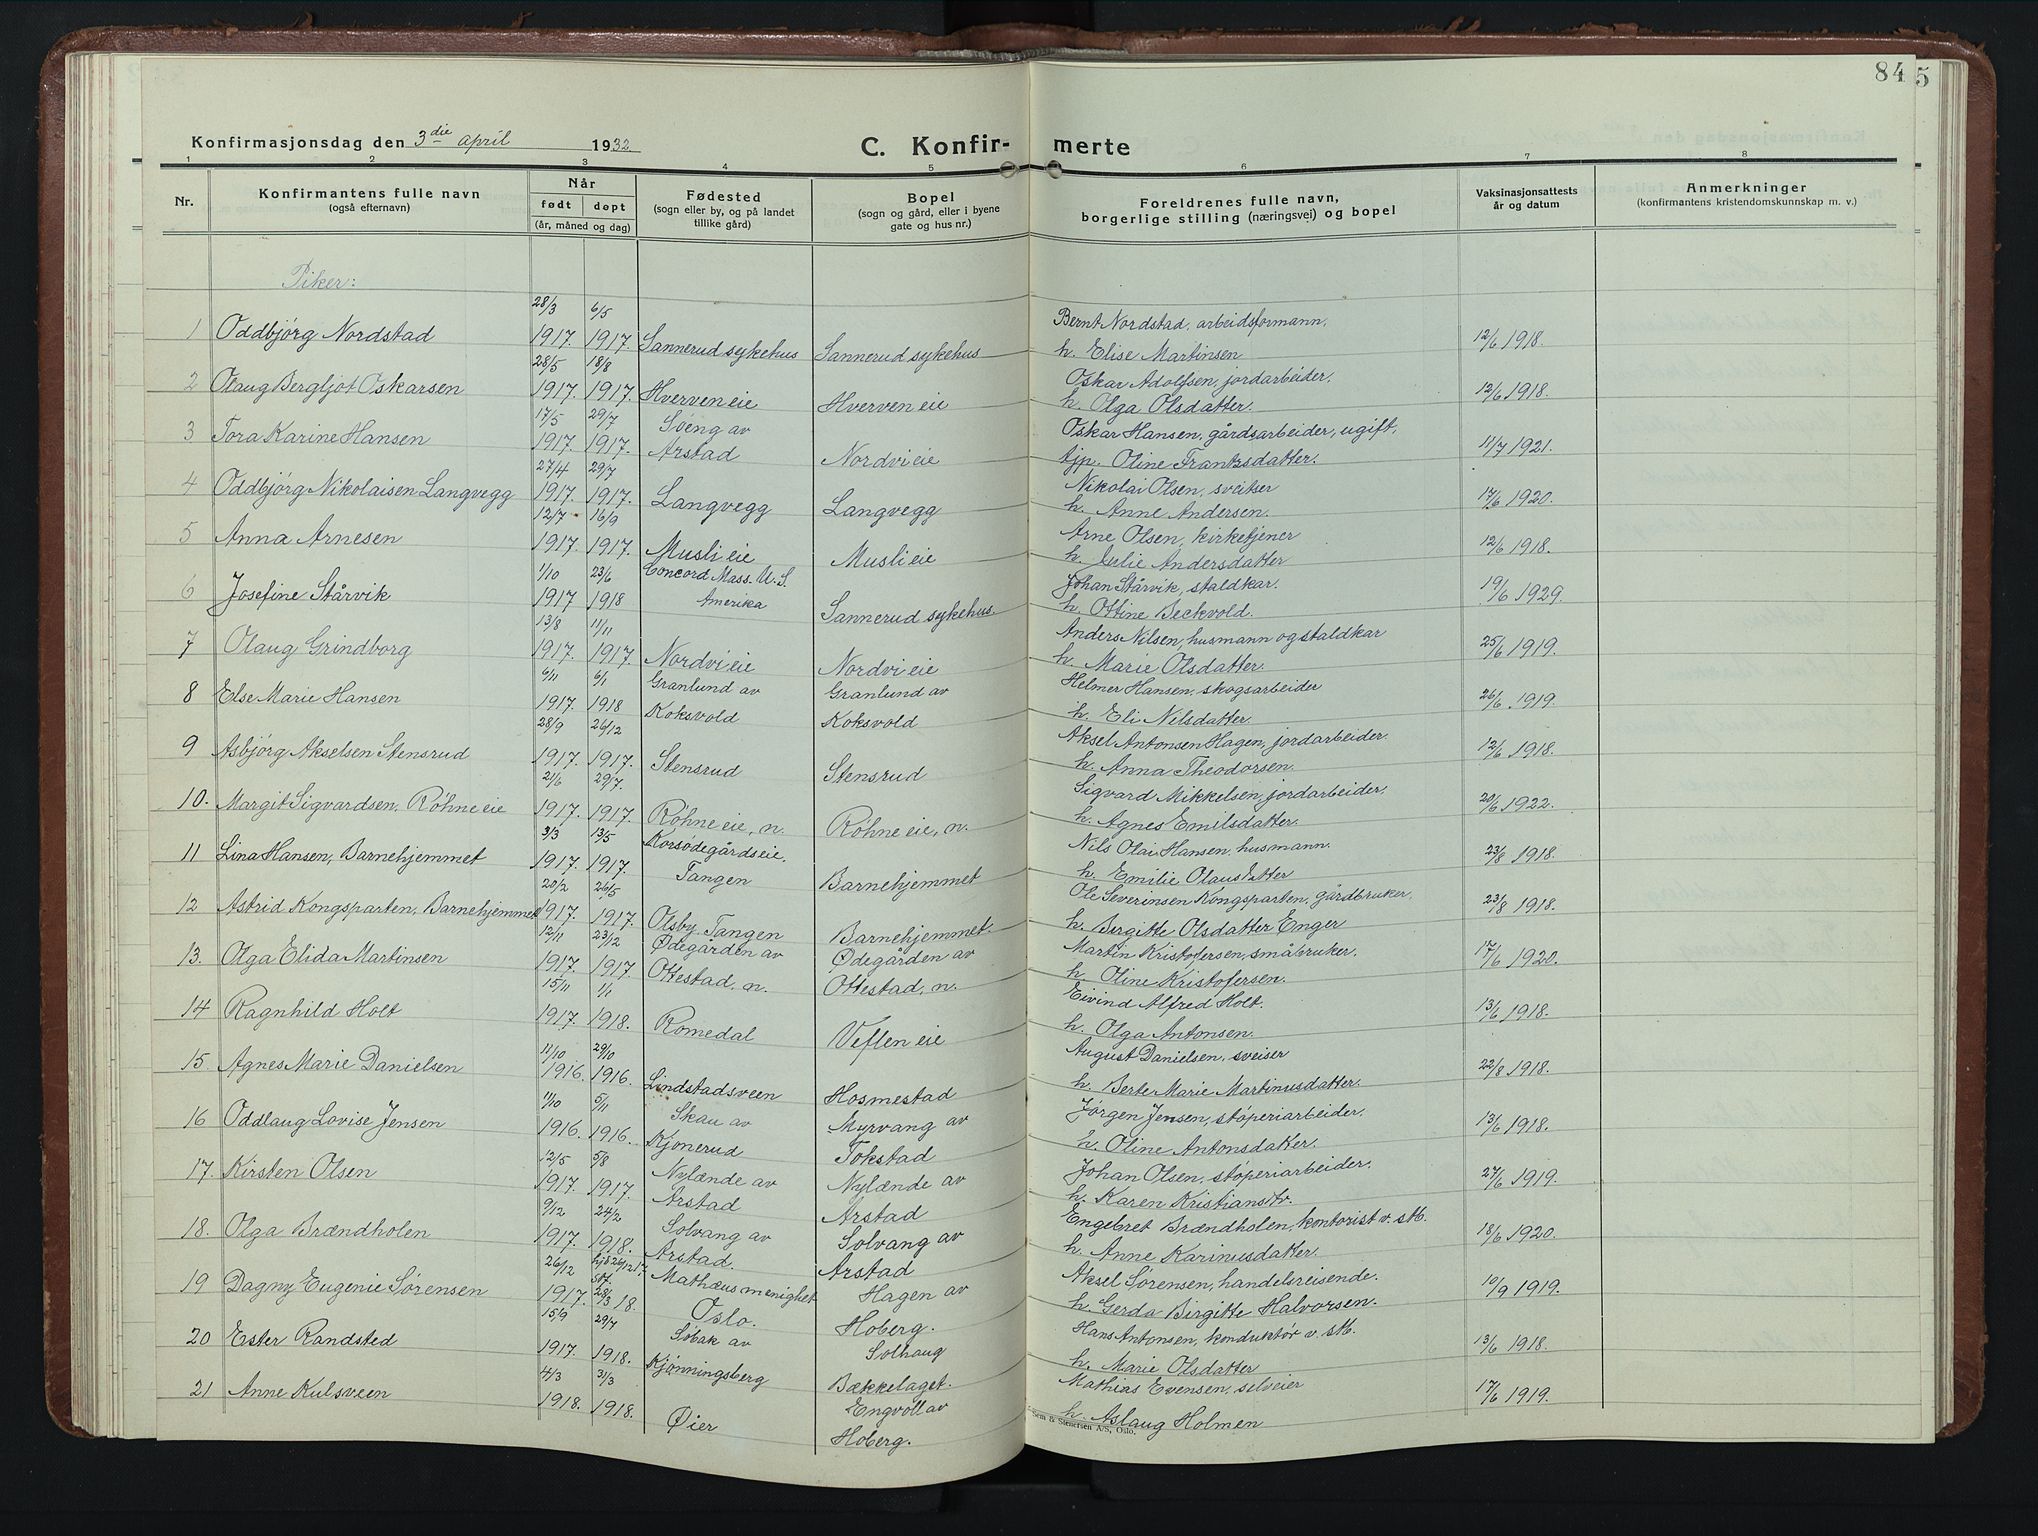 84 5
Konfirmasjonsdag den 3die april 1932
C. Konfir- merte
1 2 3 4 5 6 7 8
Nr.
Konfirmantens fulle navn
(også efternavn)
Når
født døpt
(år, måned og dag)
Fødested
(sogn eller by, og på landet
tillike gård)
Bopel
(sogn og gård, eller i byene
gate og hus nr.)
Foreldrenes fulle navn,
borgerlige stilling (næringsvei) og bopel
Vaksinasjonsattests
år og datum
Anmerkninger
(konfirmantens kristendomskunnskap m. v.)
Piker:
28/3 6/5 Bernt Nordstad, arbeidsformann,
1 Oddbjörg Nordstad 1917. 1917. Sannerud sykehus Sannerud sykehus h. Elise Martinsen 12/6 1918.
28/5 18/8 Oskar Adolfsen, jordarbeider.
2 Olaug Bergljot Oskarsen 1917. 1917. Hverven eie Hverven eie h. Olga Olsdatter. 12/6 1918.
17/5 29/7 Söeng av Oskar Hansen, gårdsarbeider, ugift,
3 Tora Karine Hansen 1917. 1917. Arstad Nordvi eie tjp. Oline Frantzsdatter. 11/7 1921.
27/4 29/7 Nikolai Olsen, sveitser
4 Oddbjörg Nikolaisen Langvegg 1917. 1917. Langvegg Langvegg h. Anne Andersen. 17/6 1920.
12/7 16/9 Arne Olsen, kirketjener
5 Anna Arnesen 1917. 1917. Musli eie Musli eie h. Julie Andersdatter 12/6 1918.
1/10 23/6 Concord Mass. U.S. Johan Stårvik, staldkar.
6 Josefine Stårvik 1917 1918 Amerika Sannerud sykehus. h. Ottine Beckvold. 19/6 1929.
13/8 11/11 Anders Nilsen, husmann og staldkar
7 Olaug Grindborg 1917. 1917. Nordvi eie Nordvi eie h. Marie Olsdatter. 25/6 1919.
6/11 6/1 Granlund av Granlund av Helmer Hansen, skogsarbeider
8 Else Marie Hansen 1917. 1918 Koksvold Koksvold h. Eli Nilsdatter. 26/6 1919.
28/9 26/12 Aksel Antonsen Hagen, jordarbeider.
9 Asbjörg Akselsen Stensrud 1917. 1917. Stensrud Stensrud h. Anna Theodorsen. 12/6 1918.
21/6 29/7. Sigvard Mikkelsen, jordarbeider,
10. Margit Sigvardsen, Röhne eie 1917. 1917. Röhne eie, n. Röhne eie, n. h. Agnes Emilsdatter. 20/6 1922.
3/3 13/5 Korsödegårdseie, Nils Olai Hansen, husmann.
11 Lina Hansen, Barnehjemmet 1917. 1917. Tangen Barnehjemmet h. Emilie Olausdatter 23/8 1918.
20/2 26/5 Ole Severinsen Kongsparten, gårdbruker.
12 Astrid Kongsparten, Barnehjemmet 1917. 1917. Olsby, Tangen Barnehjemmet. h. Birgitte Olsdatter Enger 23/8 1918.
12/11 23/12 Ødegården av Ødegården av Martin Kristofersen, småbruker.
13. Olga Elida Martinsen 1917. 1917. Ottestad, n. Ottestad, n. h. Oline Kristofersen. 17/6 1920.
15/11 1/1 Eivind Alfred Holt.
14 Ragnhild Holt 1917. 1918. Romedal Veflen eie h. Olga Antonsen. 13/6 1918.
11/10 29/10 August Danielsen, sveiser
15. Agnes Marie Danielsen 1916. 1916. Lindstadsveen Hosmestad h. Berte Marie Martinusdatter. 22/8 1918.
11/10 5/11 Skau av Myrvang av Jörgen Jensen, stöperiarbeider,
16 Oddlaug Lovise Jensen 1916. 1916. Kjonerud Tokstad h. Oline Antonsdatter. 13/6 1918.
12/5 5/8 Nylænde av Nylænde av Johan Olsen, støperiarbeider,
17. Kirsten Olsen 1917. 1917. Arstad Arstad h. Karen Kristiansdtr. 27/6 1919.
9/12 24/2 Solvang av Solvang av Engebret Brændholen, kontorist v. stb.
18. Olga Brændholen 1917. 1918. Arstad. Arstad h. Anne Karinusdatter. 18/6 1920.
26/12 hjd 26/12 17, Mathæus menighet Hagen av Aksel Sørensen, handelsreisende.
19 Dagny Eugenie Sørensen 1917. st. 28/3 18. Oslo. Hoberg. h. Gerda Birgitte Halvorsen. 10/9 1919.
15/9 29/7 Söbak av Solhaug Hans Antonsen, konduktör v. stb.
20 Ester Randsted 1917. 1918. Kjønningsberg Bækkelaget. h. Marie Olsdatter 13/6 1918.
4/3 31/3 Engvoll av Mathias Evensen, selveier
21 Anne Kulsveen 1918. 1918. Øier Hoberg. h. Aslaug Holmen 17/6 1919.
Sem & Stenersen A/S, Oslo.